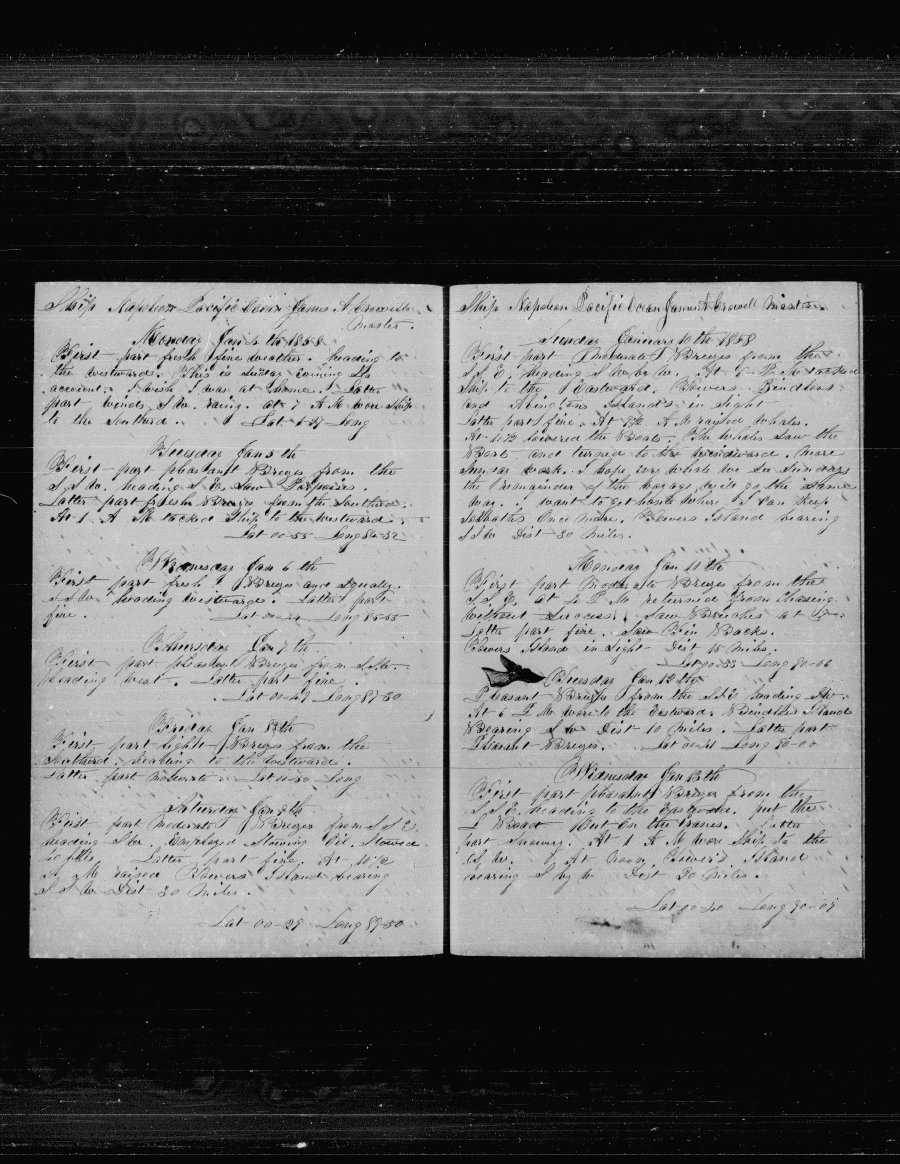 Ship Napoleon Pacific Ocean James A Crowell
Master
Monday Jan 4th 1858
First part fresh fine weather. heading to
the westward. This is sunday evening
account. I wish I was at home. Latter
part winds S W. raing. at 7 A M wore Ship
to the Southerd. Lat Long
Tuesday Jan 5th
First part pleasant Breezes from the
S S W. heading S E Saw Porpoises.
Latter part fresh Breezes from the Southerd.
At 1 A M tacked Ship to the Westward.
Lat 00-55 Long 84-52
Wednesday Jan 6th
First part fresh Breezes and squally.
S S W. heading Westward. Latter part
fine. Lat 00 Long 85-55
Thursday Jan 7th
First part pleasant Breezes from S S W.
heading West. Latter part fine.
Lat 00-49 Long 87-50
Friday Jan 8th
First part light Breezes from the
Southerd. heading to the Westward.
Latter part moderate. Lat 00-30 Long
Saturday Jan 9th
First part moderate Breezes from S S E.
heading S W. Employed Stowing Oil. Stowed
Latter part fine. At 11 1/2
A M raised Bowers Island bearing
S S W Dist 30 Miles.
Lat 00-29 Long 89-50
Ship Napoleon Pacific Ocean James A Crowell Master
Sunday January 10th 1858
First part moderate Breezes from the
S S E. heading S W by W. At 6 P M tacked
Ship to the Eastward. Bowers Bindloes
and Abington Islands in Sight
Latter part fine. At 9 1/2 A M raised Whales.
At 10 1/2 lowered the Boats. The Whales Saw the
Boat and turned to the windward. More
Sunday work. I hope ever whale we See Sundays
the remainder of the voyage will go the Same
way. I want to get home where I can keep
Sabbaths Once More. Bowers Island bearing
S S W Dist 30 Miles.
Monday Jan 11th
First part Moderate Breezes from the
S S E. at 4 P M returned from Chasing
without Success. Saw Breaches at
Latter part fine. Saw Fin Backs.
Bowers Island in Sight Dist 15 Miles.
Lat 00-33 Long 90-06
Tuesday Jan 12th
Pleasant Breezes from the S S E heading
At 6 P M wore to the Eastward. Bindloes Island
Bearing S W Dist 10 Miles. Latter part
Pleasant Breezes. Lat 00-41 Long 90-00
Wednesday Jan 13th
First part pleasant Breezes from the
S S E. heading to the Eastward. put the
L Boat Out On the Cranes. Latter
part Showery. At 1 A M Wore Ship to the
S W. At Noon Bowers Island
bearing S by W Dist 30 Miles.
Lat 00-40 Long 90-09